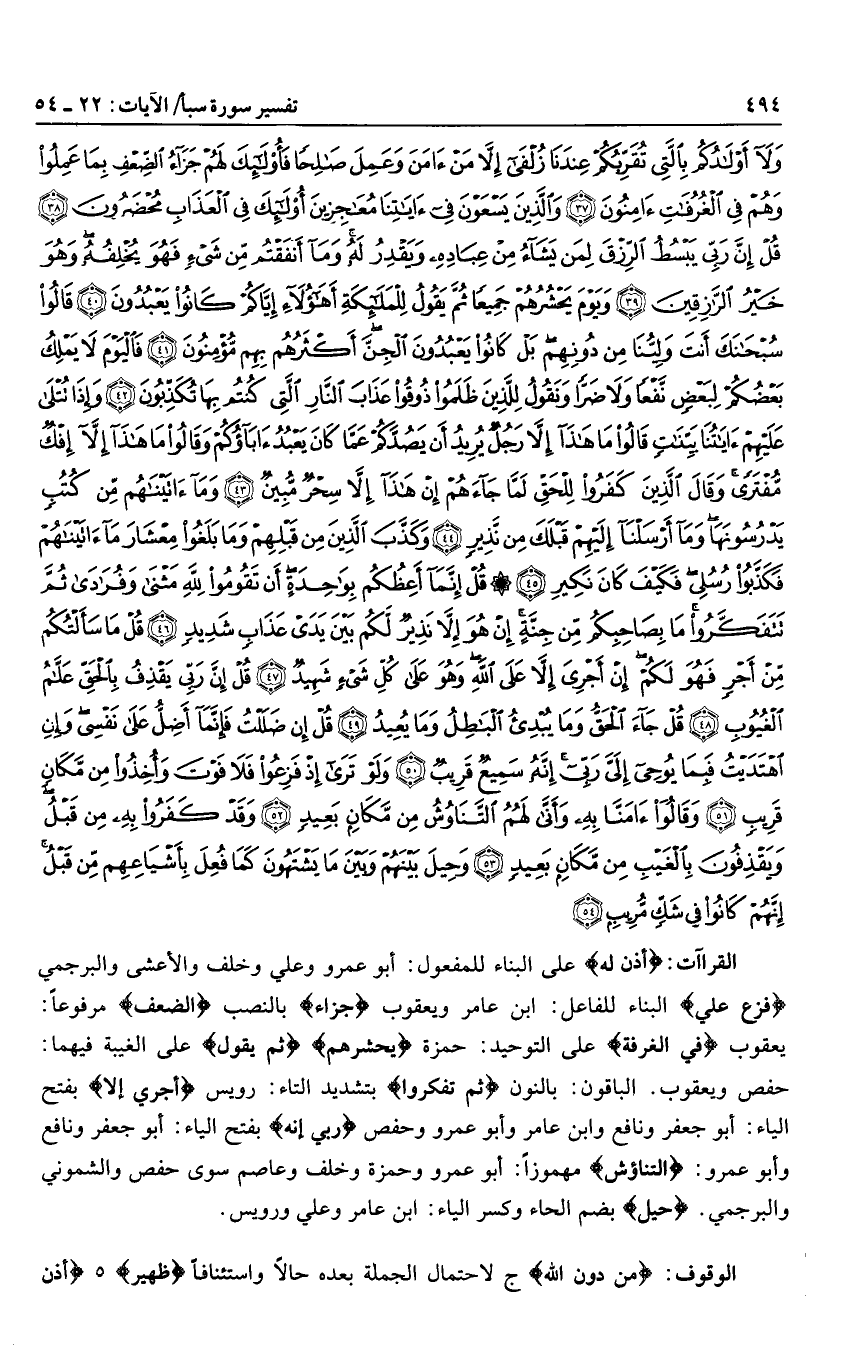 ٤٩٤ تفسير سورة سبأ/ الآيات: ٢٢ ـ ٥٤
وَلَآ أَوْلَٰدُكُم بِٱلَّتِى تُقَرِّبُكُمْ عِندَنَا زُلْفَىٰٓ إِلَّا مَنْ ءَامَنَ وَعَمِلَ صَٰلِحًا فَأُو۟لَٰٓئِكَ لَهُمْ جَزَآءُ ٱلضِّعْفِ بِمَا عَمِلُوا۟
وَهُمْ فِى ٱلْغُرُفَٰتِ ءَامِنُونَ ﴿٣٧﴾ وَٱلَّذِينَ يَسْعَوْنَ فِىٓ ءَايَٰتِنَا مُعَٰجِزِينَ أُو۟لَٰٓئِكَ فِى ٱلْعَذَابِ مُحْضَرُونَ ﴿٣٨﴾
قُلْ إِنَّ رَبِّى يَبْسُطُ ٱلرِّزْقَ لِمَن يَشَآءُ مِنْ عِبَادِهِۦ وَيَقْدِرُ لَهُۥ ۚ وَمَآ أَنفَقْتُم مِّن شَىْءٍ فَهُوَ يُخْلِفُهُۥ ۖ وَهُوَ
خَيْرُ ٱلرَّٰزِقِينَ ﴿٣٩﴾ وَيَوْمَ يَحْشُرُهُمْ جَمِيعًا ثُمَّ يَقُولُ لِلْمَلَٰٓئِكَةِ أَهَٰٓؤُلَآءِ إِيَّاكُمْ كَانُوا۟ يَعْبُدُونَ ﴿٤٠﴾ قَالُوا۟
سُبْحَٰنَكَ أَنتَ وَلِيُّنَا مِن دُونِهِم ۖ بَلْ كَانُوا۟ يَعْبُدُونَ ٱلْجِنَّ ۖ أَكْثَرُهُم بِهِم مُّؤْمِنُونَ ﴿٤١﴾ فَٱلْيَوْمَ لَا يَمْلِكُ
بَعْضُكُمْ لِبَعْضٍ نَّفْعًا وَلَا ضَرًّا وَنَقُولُ لِلَّذِينَ ظَلَمُوا۟ ذُوقُوا۟ عَذَابَ ٱلنَّارِ ٱلَّتِى كُنتُم بِهَا تُكَذِّبُونَ ﴿٤٢﴾ وَإِذَا تُتْلَىٰ
عَلَيْهِمْ ءَايَٰتُنَا بَيِّنَٰتٍ قَالُوا۟ مَا هَٰذَآ إِلَّا رَجُلٌ يُرِيدُ أَن يَصُدَّكُمْ عَمَّا كَانَ يَعْبُدُ ءَابَآؤُكُمْ وَقَالُوا۟ مَا هَٰذَآ إِلَّآ إِفْكٌ
مُّفْتَرًى ۚ وَقَالَ ٱلَّذِينَ كَفَرُوا۟ لِلْحَقِّ لَمَّا جَآءَهُمْ إِنْ هَٰذَآ إِلَّا سِحْرٌ مُّبِينٌ ﴿٤٣﴾ وَمَآ ءَاتَيْنَٰهُم مِّن كُتُبٍ
يَدْرُسُونَهَا ۖ وَمَآ أَرْسَلْنَآ إِلَيْهِمْ قَبْلَكَ مِن نَّذِيرٍ ﴿٤٤﴾ وَكَذَّبَ ٱلَّذِينَ مِن قَبْلِهِمْ وَمَا بَلَغُوا۟ مِعْشَارَ مَآ ءَاتَيْنَٰهُمْ
فَكَذَّبُوا۟ رُسُلِى ۖ فَكَيْفَ كَانَ نَكِيرِ ﴿٤٥﴾ ۞ قُلْ إِنَّمَآ أَعِظُكُم بِوَٰحِدَةٍ ۖ أَن تَقُومُوا۟ لِلَّهِ مَثْنَىٰ وَفُرَٰدَىٰ ثُمَّ
تَتَفَكَّرُوا۟ ۚ مَا بِصَاحِبِكُم مِّن جِنَّةٍ ۚ إِنْ هُوَ إِلَّا نَذِيرٌ لَّكُم بَيْنَ يَدَىْ عَذَابٍ شَدِيدٍ ﴿٤٦﴾ قُلْ مَا سَأَلْتُكُم
مِّنْ أَجْرٍ فَهُوَ لَكُمْ ۖ إِنْ أَجْرِىَ إِلَّا عَلَى ٱللَّهِ ۖ وَهُوَ عَلَىٰ كُلِّ شَىْءٍ شَهِيدٌ ﴿٤٧﴾ قُلْ إِنَّ رَبِّى يَقْذِفُ بِٱلْحَقِّ عَلَّٰمُ
ٱلْغُيُوبِ ﴿٤٨﴾ قُلْ جَآءَ ٱلْحَقُّ وَمَا يُبْدِئُ ٱلْبَٰطِلُ وَمَا يُعِيدُ ﴿٤٩﴾ قُلْ إِن ضَلَلْتُ فَإِنَّمَآ أَضِلُّ عَلَىٰ نَفْسِى ۖ وَإِنِ
ٱهْتَدَيْتُ فَبِمَا يُوحِىٓ إِلَىَّ رَبِّىٓ ۚ إِنَّهُۥ سَمِيعٌ قَرِيبٌ ﴿٥٠﴾ وَلَوْ تَرَىٰٓ إِذْ فَزِعُوا۟ فَلَا فَوْتَ وَأُخِذُوا۟ مِن مَّكَانٍ
قَرِيبٍ ﴿٥١﴾ وَقَالُوٓا۟ ءَامَنَّا بِهِۦ وَأَنَّىٰ لَهُمُ ٱلتَّنَاوُشُ مِن مَّكَانٍ بَعِيدٍ ﴿٥٢﴾ وَقَدْ كَفَرُوا۟ بِهِۦ مِن قَبْلُ ۖ
وَيَقْذِفُونَ بِٱلْغَيْبِ مِن مَّكَانٍ بَعِيدٍ ﴿٥٣﴾ وَحِيلَ بَيْنَهُمْ وَبَيْنَ مَا يَشْتَهُونَ كَمَا فُعِلَ بِأَشْيَاعِهِم مِّن قَبْلُ ۚ
إِنَّهُمْ كَانُوا۟ فِى شَكٍّ مُّرِيبٍ ﴿٥٤﴾
القراآت: ﴿أذن له﴾ على البناء للمفعول: أبو عمرو وعلي وخلف والأعشى والبرجمي
﴿فزع علي﴾ البناء للفاعل: ابن عامر ويعقوب ﴿جزاء﴾ بالنصب ﴿الضعف﴾ مرفوعاً:
يعقوب ﴿في الغرفة﴾ على التوحيد: حمزة ﴿يحشرهم﴾ ﴿ثم يقول﴾ على الغيبة فيهما:
حفص ويعقوب. الباقون: بالنون ﴿ثم تفكروا﴾ بتشديد التاء: رويس ﴿أجري إلا﴾ بفتح
الياء: أبو جعفر ونافع وابن عامر وأبو عمرو وحفص ﴿ربي إنه﴾ بفتح الياء: أبو جعفر ونافع
وأبو عمرو: ﴿التناؤش﴾ مهموزاً: أبو عمرو وحمزة وخلف وعاصم سوى حفص والشموني
والبرجمي. ﴿حيل﴾ بضم الحاء وكسر الياء: ابن عامر وعلي ورويس.
الوقوف: ﴿من دون الله﴾ ج لاحتمال الجملة بعده حالاً واستئنافاً ﴿ظهير﴾ ٥ ﴿أذن